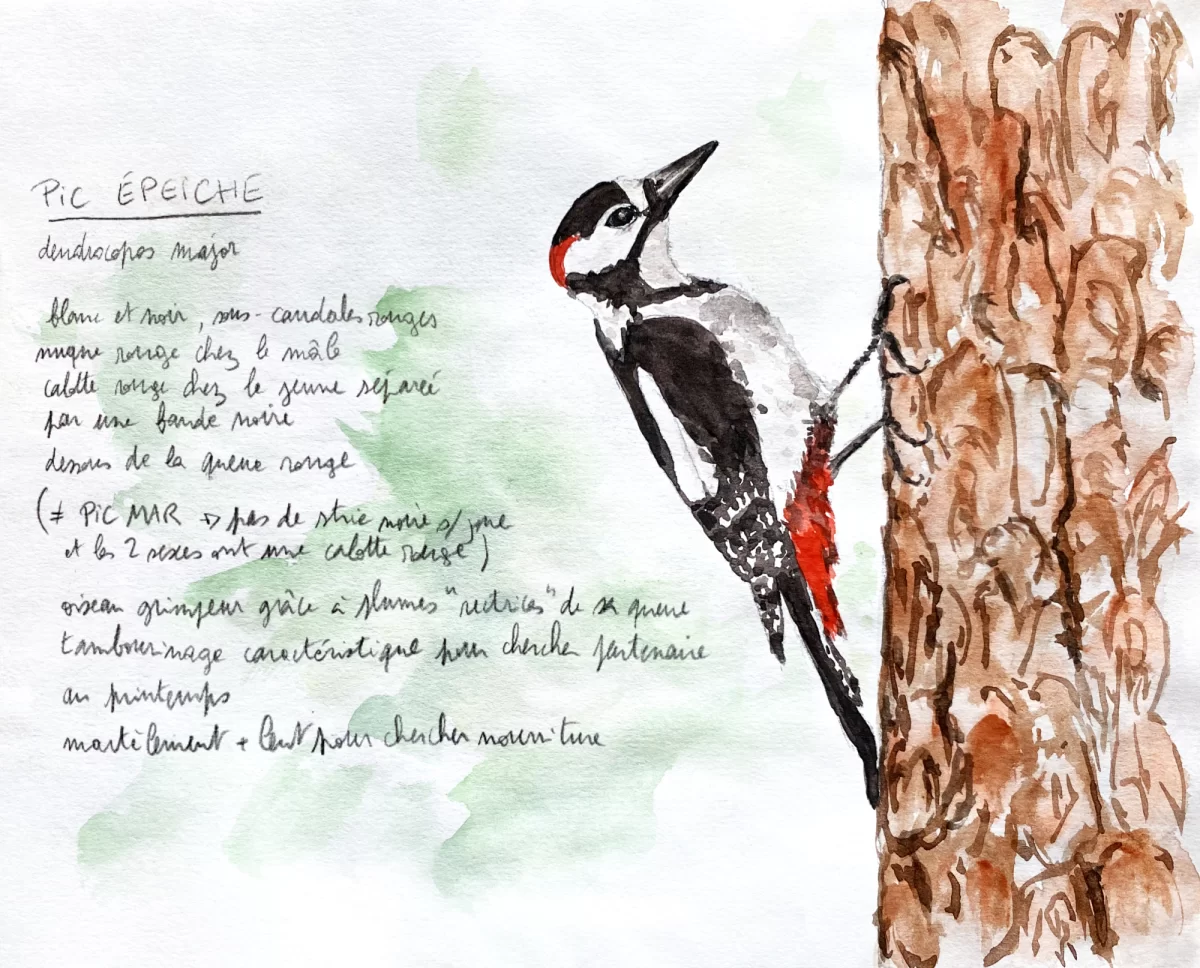 PIC ÉPEICHE
dendrocopos major
blanc et noir, sous-caudales rouges
nuque rouge chez le mâle
calotte rouge chez le jeune séparée
par une bande noire
dessous de la queue rouge
(≠ PIC MAR => pas de strie noire s/ joue
et les 2 sexes ont une calotte rouge)
oiseau grimpeur grâce à plumes "rectrices" de sa queue
tambourinage caractéristique pour chercher partenaire
au printemps
martèlement + lent pour chercher nourriture